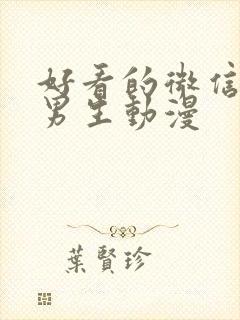 好看的微信
男生動漫
葉賢珍